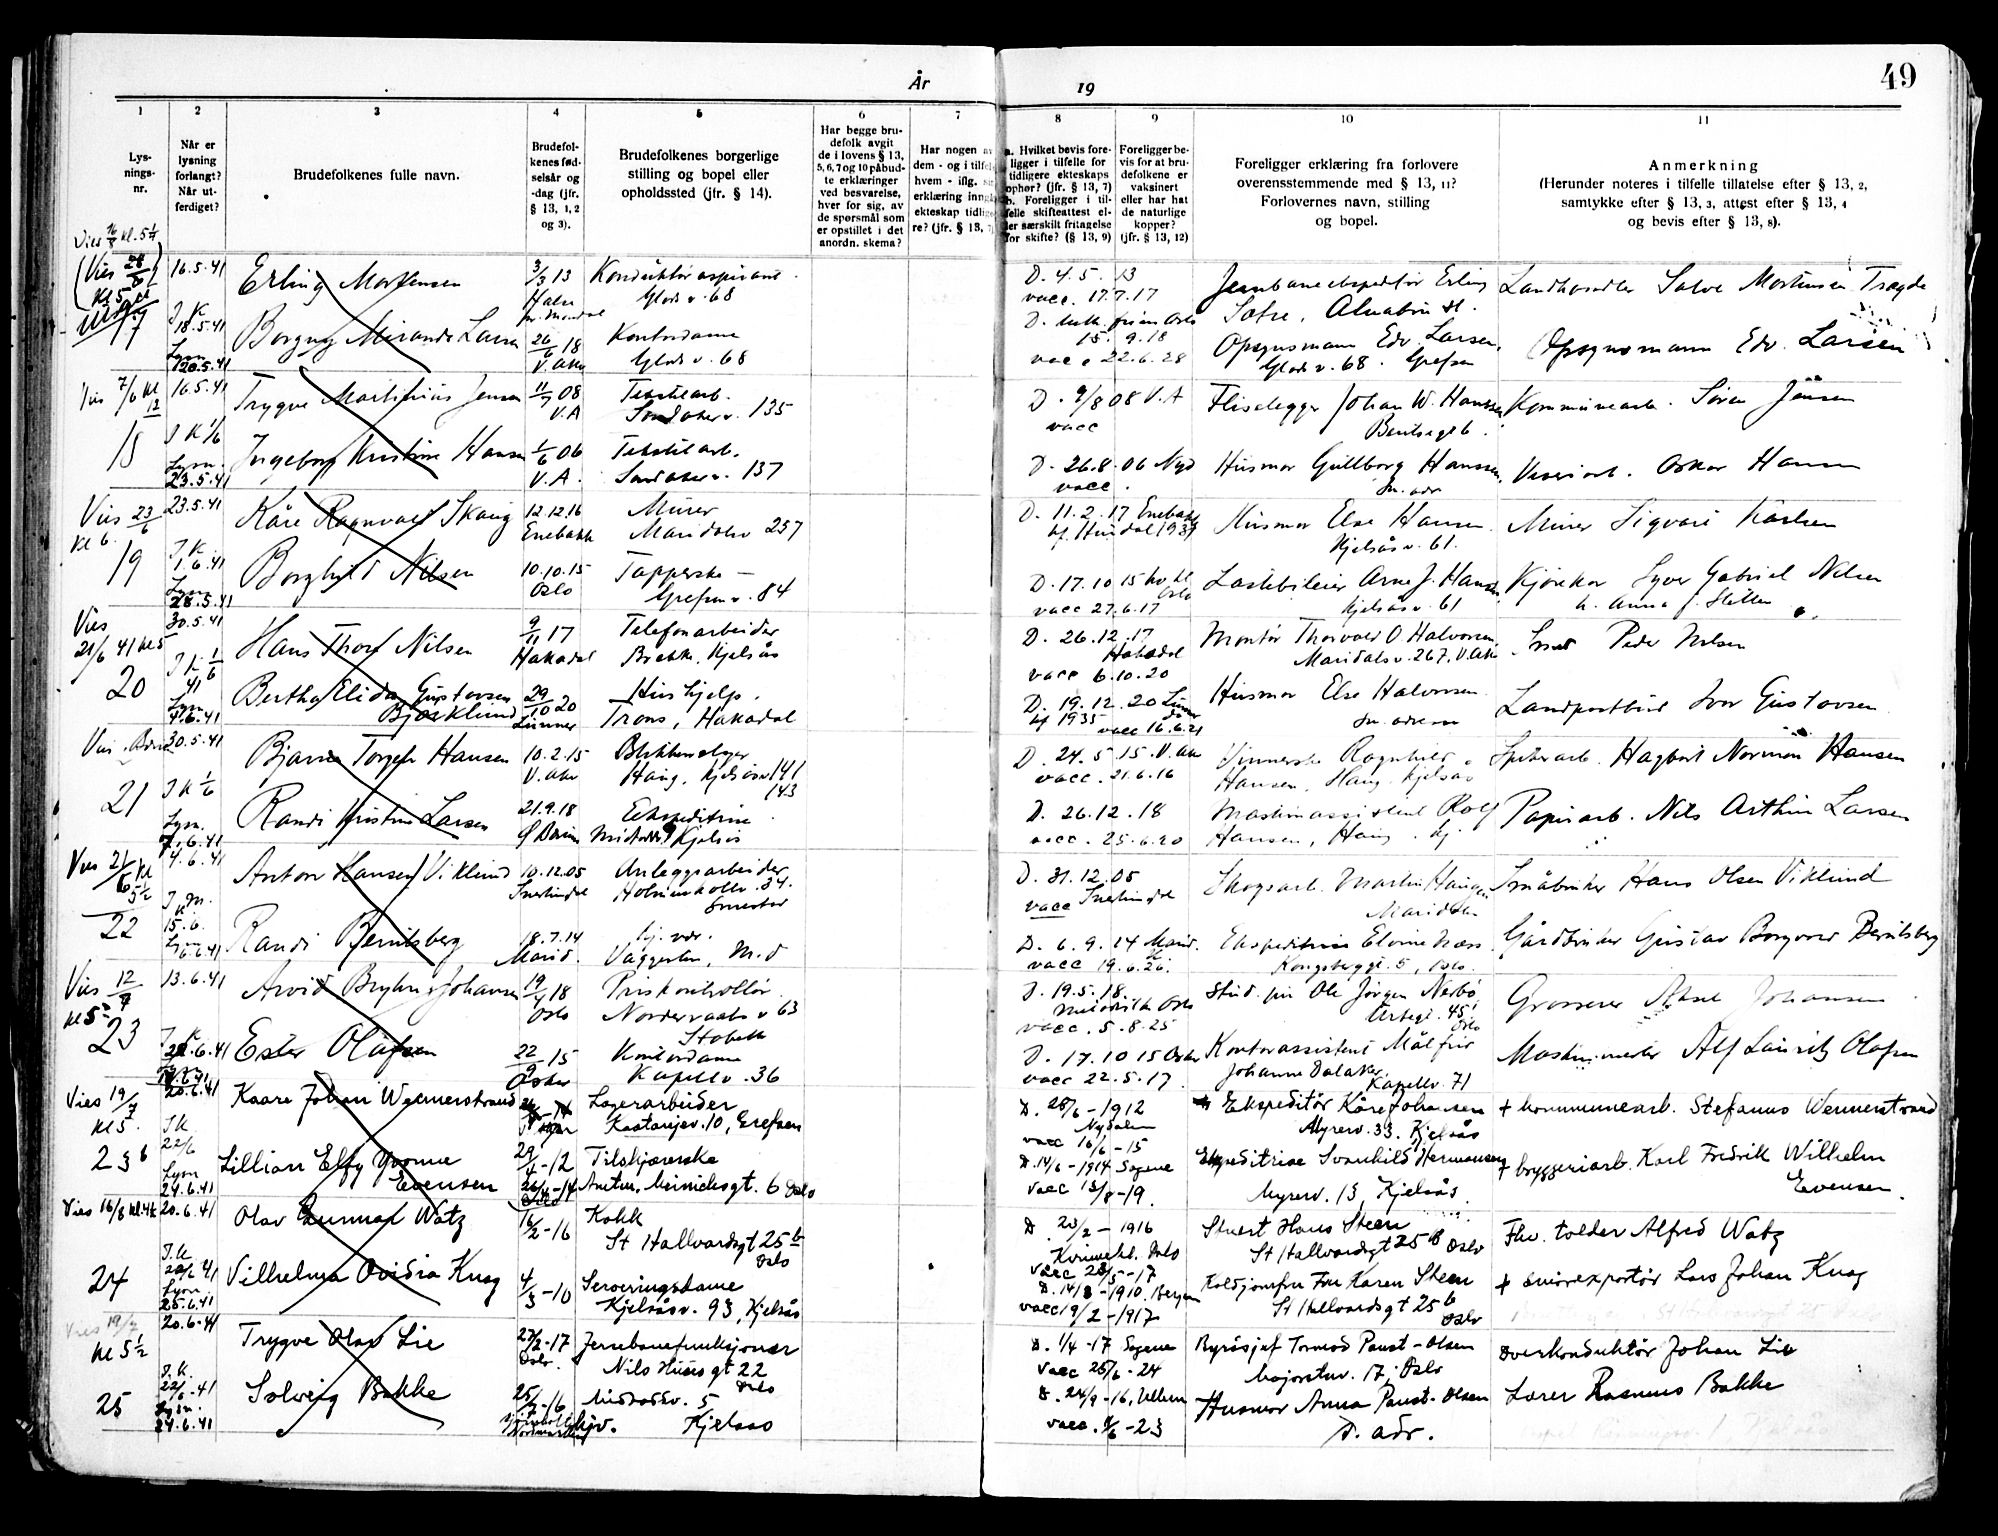 År
19
49
1
2
3
4
5
6
7
8
9
10
11
Lys-
nings-
nr.
Når er
lysning
forlangt?
Når ut-
ferdiget?
Brudefolkenes fulle navn.
Brudefol-
kenes fød-
selsår og
-dag (jfr.
§ 13, 1, 2
og 3).
Brudefolkenes borgerlige
stilling og bopel eller
opholdssted (jfr. § 14).
Har begge bru-
defolk avgit
de i lovens § 13,
5, 6, 7 og 10 påbud-
te erklæringer
ved besvarelse,
hver for sig, av
de spørsmål som
er opstillet i det
anordn. skema?
Har nogen av
dem - og i tilfel
hvem - iflg. si
erklæring inng
ekteskap tidlige
re? (jfr. § 13, 7)
a. Hvilket bevis fore-
ligger i tilfelle for
tidligere ekteskaps
ophør? (jfr. § 13, 7)
b. Foreligger i til-
felle skifteattest el-
ler særskilt fritagelse
for skifte? (§ 13, 9)
Foreligger be-
vis for at bru-
defolkene er
vaksinert
eller har hat
de naturlige
kopper?
(jfr. § 13, 12)
Foreligger erklæring fra forlovere
overensstemmende med § 13, 11?
Forlovernes navn, stilling
og bopel.
Anmerkning
(Herunder noteres i tilfelle tillatelse efter § 13, 2,
samtykke efter § 13, 3, attest efter § 13, 4
og bevis efter § 13, 8).
16.5.41
Erling Mortensen
3/3 13
Konduktøraspirant
Glads v. 68
D. 4.5.13
vacc. 17.7.17
Jernbaneekspeditør Erling
Sætre, Alnabru st.
Landhandler Salve Mortensen Trægde
17
18.5.41
Lysn.
20.5.41
Borgny Miranda Larsen
26/6 18
V. Aker
Kontordame
Glads v. 68
15.9.18
vacc 22.6.28
Opsynsmann Edv. Larsen,
Glads v. 68. Grefsen
Opsynsmann Edv. Larsen
Vies 7/6 kl 12
16.5.41
Trygve Martinius Jensen
11/7 08
V.A
Tekstilarb.
Sandakerv. 135
D. 9/8 08 V.A
vacc
Fliselegger Johan W. Hanssen
Bentsegt 6.
Kommunearb. Søren Jensen
18
J K 1/6
Lysn.
23.5.41
Ingeborg Kristine Hansen
1/6 06
V.A.
Tekstilarb.
Sandakerv. 137
D. 26.8.06 Nyd
vacc.
Husmor Gullborg Hanssen,
sm. adr
Veveriarb. Oskar Hansen
Vies 23/6
kl 6.
23.5.41
Kåre Ragnvald Skaug
12.12.16
Enebakk
Murer
Maridalsv 257
D. 11.2.17 Enebakk
kf. Hurdal 1931
Husmor Else Hansen.
Kjelsåsv. 61.
Murer Sigvart Karlsen
19
J. K.
1.6.41
Lysn
28.5.41
Borghild Nilsen
10.10.15
Oslo
Tapperske —
Grefsenv. 84
D. 17.10.15
Oslo
vacc 27.6.17
Lastebileier Arne J. Hansen,
Kjelsåsv. 61
Kjørekar Syver Gabriel Nilsen
Vies
21/6 41 kl 5
30.5.41
Hans Thorf Nilsen
9/11 17
Hakadal
Telefonarbeider
Brekke, Kjelsås
D. 26.12.17
Hakadal
vacc 6.10.20
Montør Thorvald O Halvorsen,
Maridalsv. 267, V. Aker
Smed Peder Nilsen
20
J K 1/6
41
Lysn
4.6.41
Bertha Elida Gustavsen
Bjørklund
29/10 20
Lunner
Hushjelp.
Trons, Hakadal
D. 19.12.20 Lunner
kf 1935
vacc 16.6.21
Husmor Else Halvorsen.
sm. adresse
Landpostbud Ivar Gustavsen.
30.5.41
Bjarne Torgeir Hansen
10.2.15
V. Aker
Blikkenslager
Haug, Kjelsåsv 141
143
D. 24.5.15. V. Aker
vacc. 21.6.16
Vinnerske Ragnhild
Hansen, Haug, Kjelsås
Spikerarb. Hagbart Norman Hansen
21
J K 1/6
Lysn.
7.6.41
Randi Kristine Larsen
21.9.18
Ø Bærum
Ekspeditrise
Midtoddv. 9 Kjelsås
D. 26.12.18
vacc. 25.6.20
Maskinassistent Rolf
Hansen, Haug. Kj.
Papirarb. Nils Arthur Larsen
Vies 21/6 kl
5½
4.6.41
Anton Hansen Viklund
10.12.05
Snertindal
Anleggsarbeider
Holmenkollv. 34.
D. 31.12.05
vacc Snertindal
Skogsarb. Martin Haugen
Maridalen
Småbruker Hans Olsen Viklund
22
15.6.
Lysn
6.6.41
Randi Berntsberg
18.7.14
Marid.
hj. vær.
Vaggesten, M.d
D. 6.9.14 Marid.
vacc 19.6.26.
Ekspeditrise Elvine Næss
Kongsberggt. 5, Oslo.
Gårdbruker Gustav Borgvard Berntsberg
Vies 12/7
kl 5
13.6.41
Arvid Bryhn Johansen
19/4 18
Oslo
Priskontrollør
Nordervaals v 63
Stabekk
D. 19.5.18
vacc. 5.8.25
Stud. jur Ole Jørgen Nerbø,
45,
Oslo
Grosserer Aksel Johansen
23
J. K
22.6.41
Ester Olafsen
22/9 15
Asker
Kontordame
Kapellv. 36
D. 17.10.15 Asker
vacc 22.5.17.
Kontorassistent Målfrid
Johanne Dalaker
Kapellv. 71
Maskinmester Alf Lauritz Olafsen
Vies 19/7
kl 5.
20.6.41
Kaare Johan Wennerstrand
Lagerarbeider
Kastanjev. 10, Grefsen
D. 28/6 - 1912
Nydalen
vacc 16/6 - 15
Ekspeditør Kåre Johansen
Myrerv. 33. Kjelsås
+ kommunearb. Stefanus Wennerstrand
23 b
J.K
22/6
Lysn
24.6.41
Lillian Elfy Yvonne
Evensen
29/4 - 12
26/4 - 14
Oslo
Tilskjærerske
Anetun, Heimdalsgt. 6 Oslo
D. 14/6 - 1914 Sagene
vacc 13/8 - 19.
Ekspeditrise Svanhild Hermansen
Myrerv. 13, Kjelsås
+ bryggeriarb. Karl Fredrik Wilhelm
Evensen.
Vies 16/8 kl. 4½
20.6.41
Olav Gunnar Watz
16/2 - 16
Kokk
St Hallvardsgt 25 b
Oslo
D 23/2 - 1916
Oslo
vacc 23/5 - 17
Stuert Hans Steen
St Hallvardsgt 25 B Oslo
Fhv. tolder Alfred Watz
24
J.K
22/6 41
Lysn
25.6.41
Vilhelma Ovidia Knag
4/3 - 10
Serveringsdame
Kjelsåsv. 93, Kjelsås
D. 14/8 - 1910. Bergen
vacc 19/2 - 1917
Koldjomfru Fru Karen Steen
St Hallvardsgt 25 b
Oslo
+ smøreksportør Lars Johan Knag
Vies 19/7
kl 5½
20.6.41
Trygve Olav Lie
27/2 - 17
Oslo.
Jernbanefunksjonær
Nils Huus gt 22
Oslo
D. 1/4 - 17 Sagene
vacc 25/6 - 24
Byråsjef Tormod Paust - Olsen
Majorstuv. 17, Oslo
Overkonduktør Johan Lie
25
J.K.
22/6 - 41
Lysn.
24.6.41
Solveig Bakke
25/7 - 16
Midtoddv. 5
hjv. Kjelsås
D. 24/9 - 16, Ullern
vacc. 9/6 - 23
Husmor Anna Paust - Olsen
D. adr.
Lærer Rasmus Bakke